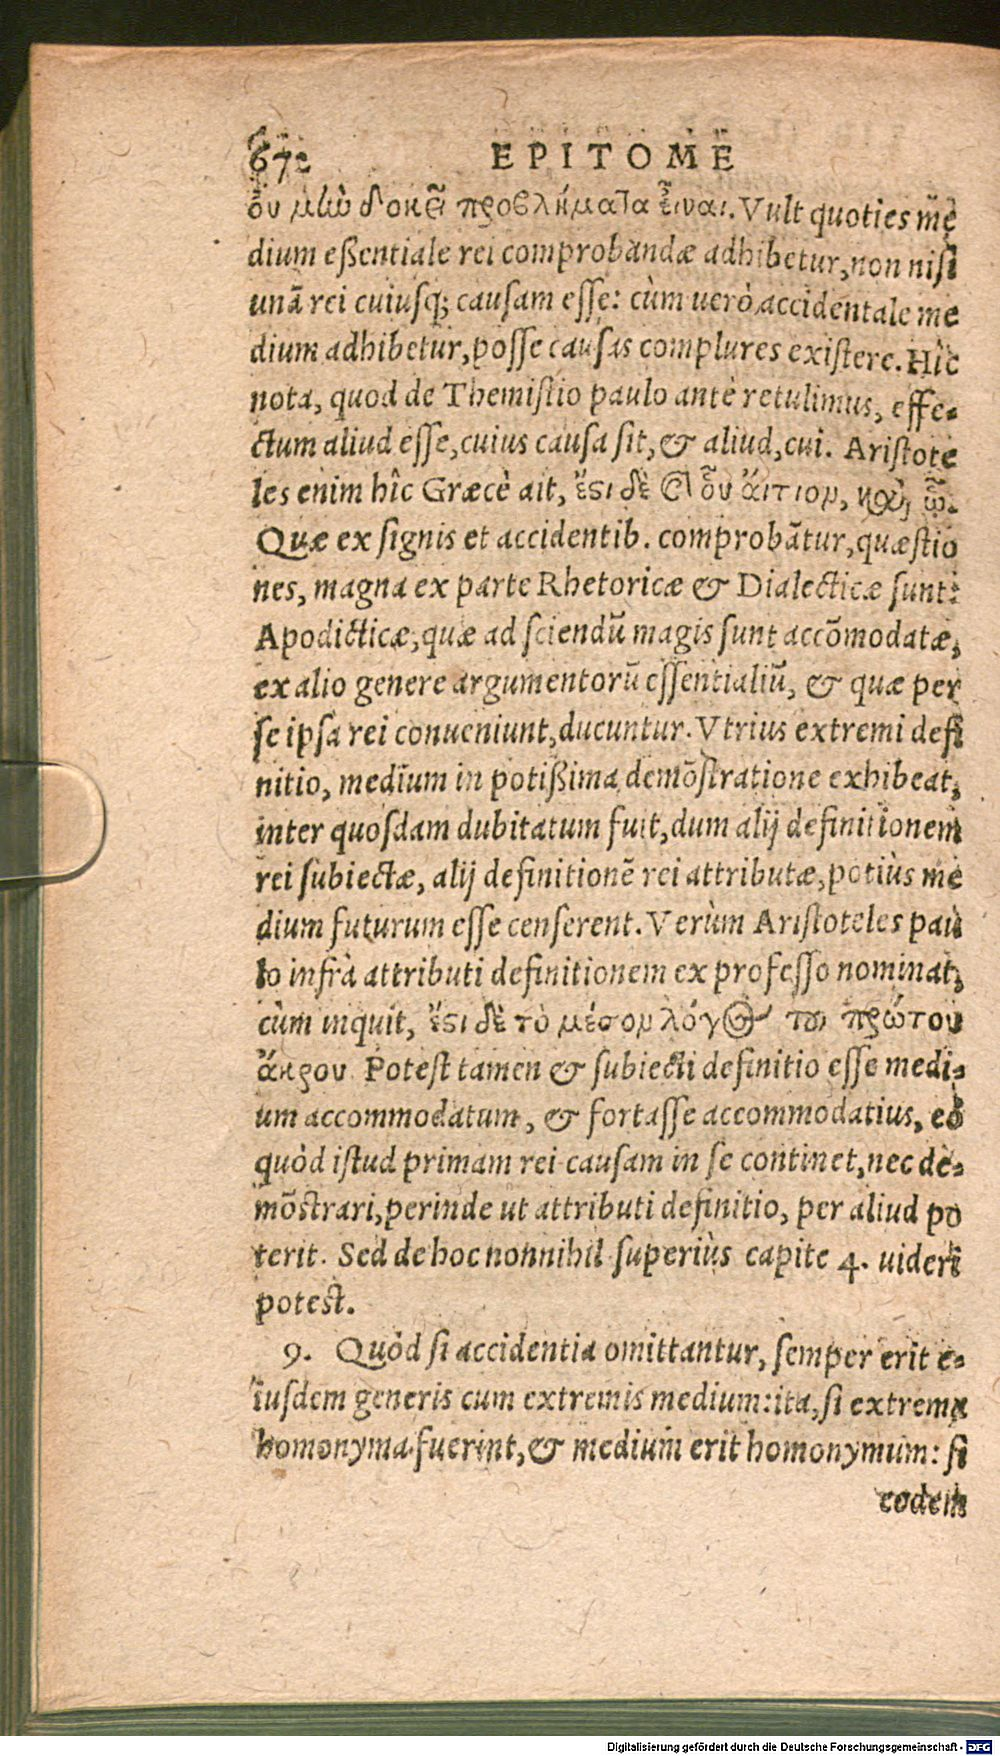 672 EPITOME
οὐ μὴν δοκεῖ προβλήματα εἶναι. Vult quoties mẽ
dium eßentiale rei comprobandæ adhibetur, non niſi
unã rei cuiuſq; cauſam eſſe: cùm uerò accidentale me
dium adhibetur, poſſe cauſas complures exiſtere. Hîc
nota, quod de Themiſtio paulo antè retulimus, effe-
ctum aliud eſſe, cuius cauſa ſit, & aliud, cui. Ariſtote
les enim hîc Græcè ait, ἔστι δὲ καὶ οὗ ἄιτιον, καὶ, ᾧ.
Quæ ex ſignis et accidentib. comprobãtur, quæſtio
nes, magna ex parte Rhetoricæ & Dialecticæ ſunt:
Apodicticæ, quæ ad ſciendũ magis ſunt accõmodatæ,
ex alio genere argumentorũ eſſentialiũ, & quæ per
ſe ipſa rei conueniunt, ducuntur. Vtrius extremi defi
nitio, medium in potißima demõſtratione exhibeat,
inter quoſdam dubitatum fuit, dum alij definitionem
rei ſubiectæ, alij definitionẽ rei attributæ, potiùs me
dium futurum eſſe cenſerent. Verùm Ariſtoteles pau
lo infrà attributi definitionem ex profeſſo nominat,
cùm inquit, ἔστι δὲ τὸ μέσον λόγος τοῦ πρώτου
ἄκρου. Poteſt tamen & ſubiecti definitio eſſe medi-
um accommodatum, & fortaſſe accommodatius, eò
quòd iſtud primam rei cauſam in ſe continet, nec de-
mõſtrari, perinde ut attributi definitio, per aliud po
terit. Sed de hoc nonnihil ſuperiùs capite 4. uideri
poteſt.
9. Quòd ſi accidentia omittantur, ſemper erit e-
iuſdem generis cum extremis medium: ita, ſi extrema
homonyma fuerint, & medium erit homonymum: ſi
eodem
Digitalisierung gefördert durch die Deutsche Forschungsgemeinschaft - DFG